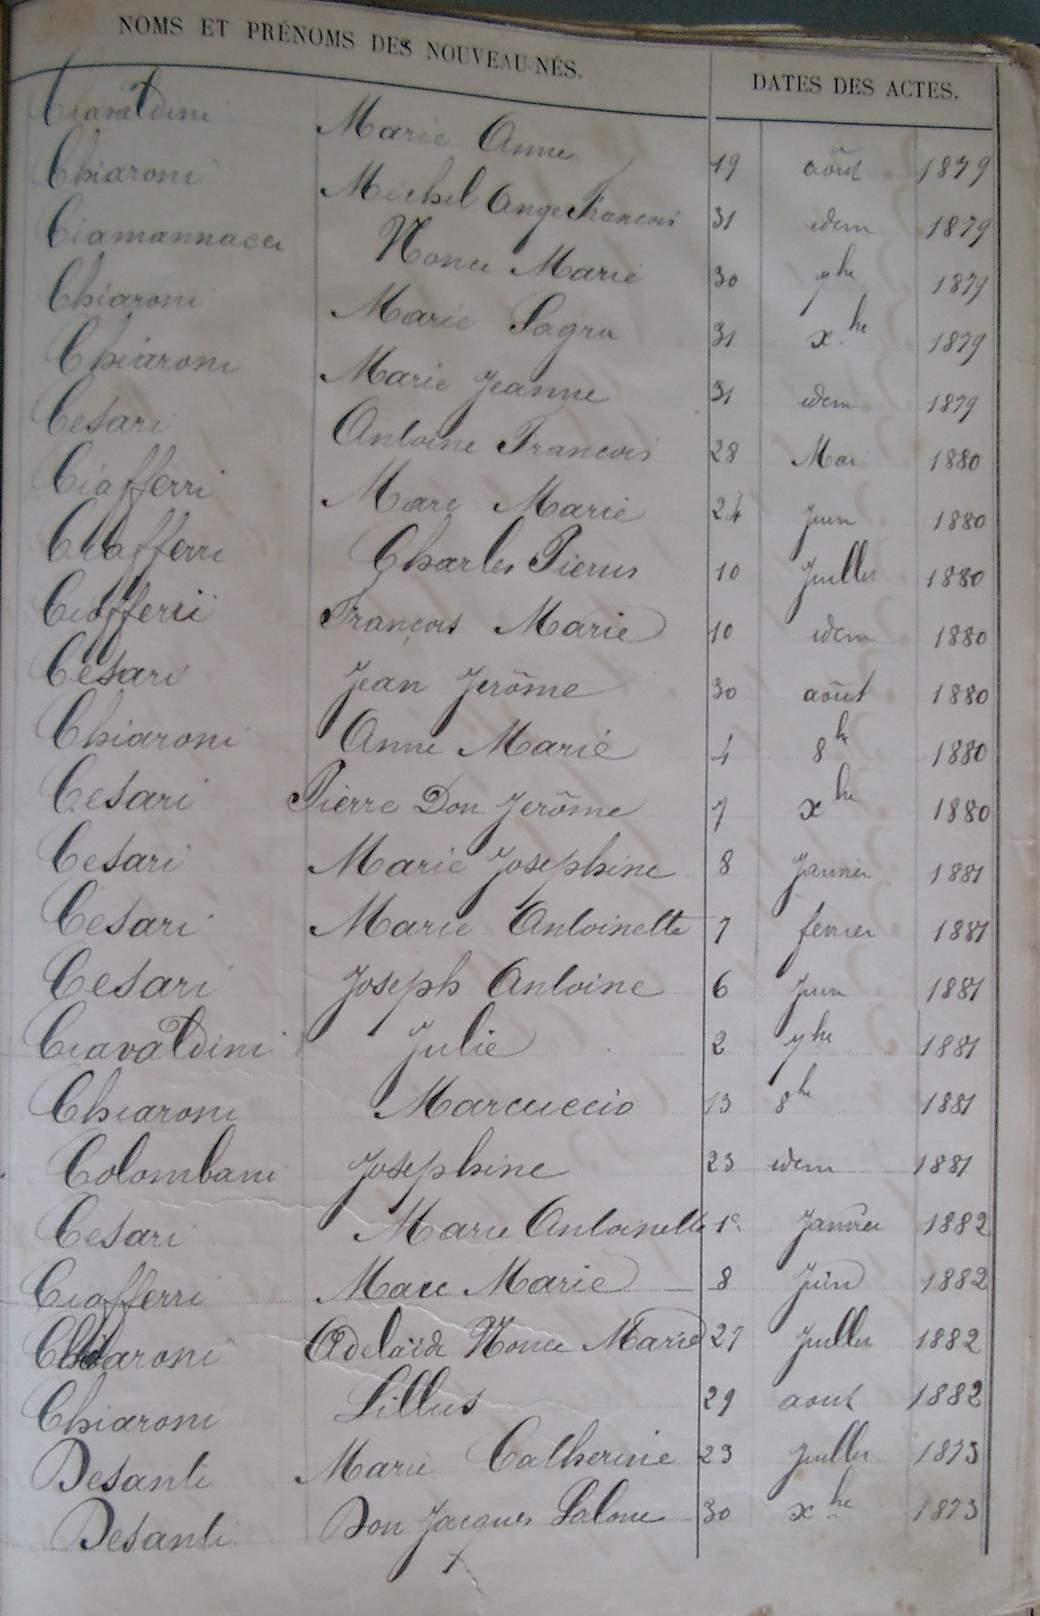 NOMS ET PRÉNOMS DES NOUVEAU-NÉS. DATES DES ACTES.
Ciavaldini Marie Anne 19 août 1879
Chiaroni Michel Ange Francois 31 idem 1879
Ciamannacci Nonce Marie 30 9bre 1879
Chiaroni Marie Sagra 31 xbre 1879
Chiaroni Marie Jeanne 31 idem 1879
Cesari Antoine Francois 28 Mai 1880
Ciafferri Marc Marie 24 Juin 1880
Ciafferri Charles Pierus 10 Juillet 1880
Ciafferri François Marie 10 idem 1880
Cesari Jean Jerôme 30 août 1880
Chiaroni Anne Marie 4 8bre 1880
Cesari Pierre Don Jerôme 7 xbre 1880
Cesari Marie Josephine 8 Janvier 1881
Cesari Marie Antoinette 7 fevrier 1881
Cesari Joseph Antoine 6 Juin 1881
Ciavaldini Julie 2 7bre 1881
Chiaroni Marcuccio 13 8bre 1881
Colombani Josephine 23 idem 1881
Cesari Marie Antoinette 1er Janvier 1882
Ciafferri Marc Marie 8 Juin 1882
Chiaroni Adelaïde Nonce Marie 27 Juillet 1882
Chiaroni Lillus 29 aout 1882
Desanti Marie Catherine 23 Juillet 1873
Desanti Don Jacques 30 xbre 1873